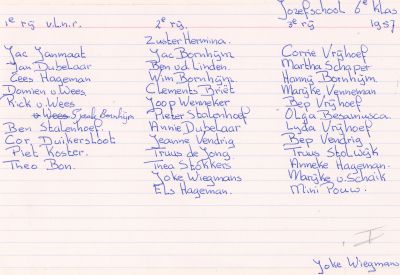 Jozefschool 6e klas
1e rij v.l.n.r. 2e rij. 3e rij 1957
Zuster Hermina.
Jac Janmaat Jac Bornhijm Corrie Vrijhoef
Jan Dubelaar Ben vd Linden. Martha Schaper
Cees Hageman Wim Bornhijm Hanny Bornhijm
Dorrien v Wees Clements Briët Marijke Venneman
Rick v Wees Joop Wenneker Bep Vrijhoef
Sjaak Bornhijm Pieter Stalenhoef Olga Besanusca.
Ben Stalenhoef. Annie Dubelaar Lyda Vrijhoef
Cor Duikersloot Jeanne Vendrig Bep Vendrig
Piet Koster. Truus de Jong. Truus Stolwijk
Theo Bon. Thea Stokkers Anneke Hageman
Joke Wiegmans Marijke v. Schaik
Els Hageman. Mini Pouw.
I
Joke Wiegmans